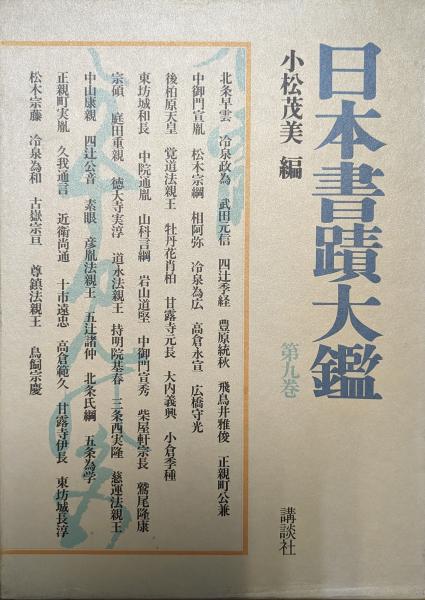 日本書蹟大鑑
第九巻
小松茂美 編
講談社
北条早雲 冷泉政為 武田元信 四辻季経 豊原統秋 飛鳥井雅俊 正親町公兼
中御門宣胤 松木宗綱 相阿弥 冷泉為広 高倉永宣 広橋守光
後柏原天皇 覚道法親王 牡丹花肖柏 甘露寺元長 大内義興 小倉季種
東坊城和長 中院通胤 山科言綱 岩山道堅 中御門宣秀 柴屋軒宗長 鷲尾隆康
宗碩 庭田重親 徳大寺実淳 道永法親王 持明院基春 三条西実隆 慈運法親王
中山康親 四辻公音 素眼 彦胤法親王 五辻諸仲 北条氏綱 五条為学
正親町実胤 久我通言 近衛尚通 十市遠忠 高倉範久 甘露寺伊長 東坊城長淳
松木宗藤 冷泉為和 古嶽宗亘 尊鎮法親王 鳥飼宗慶